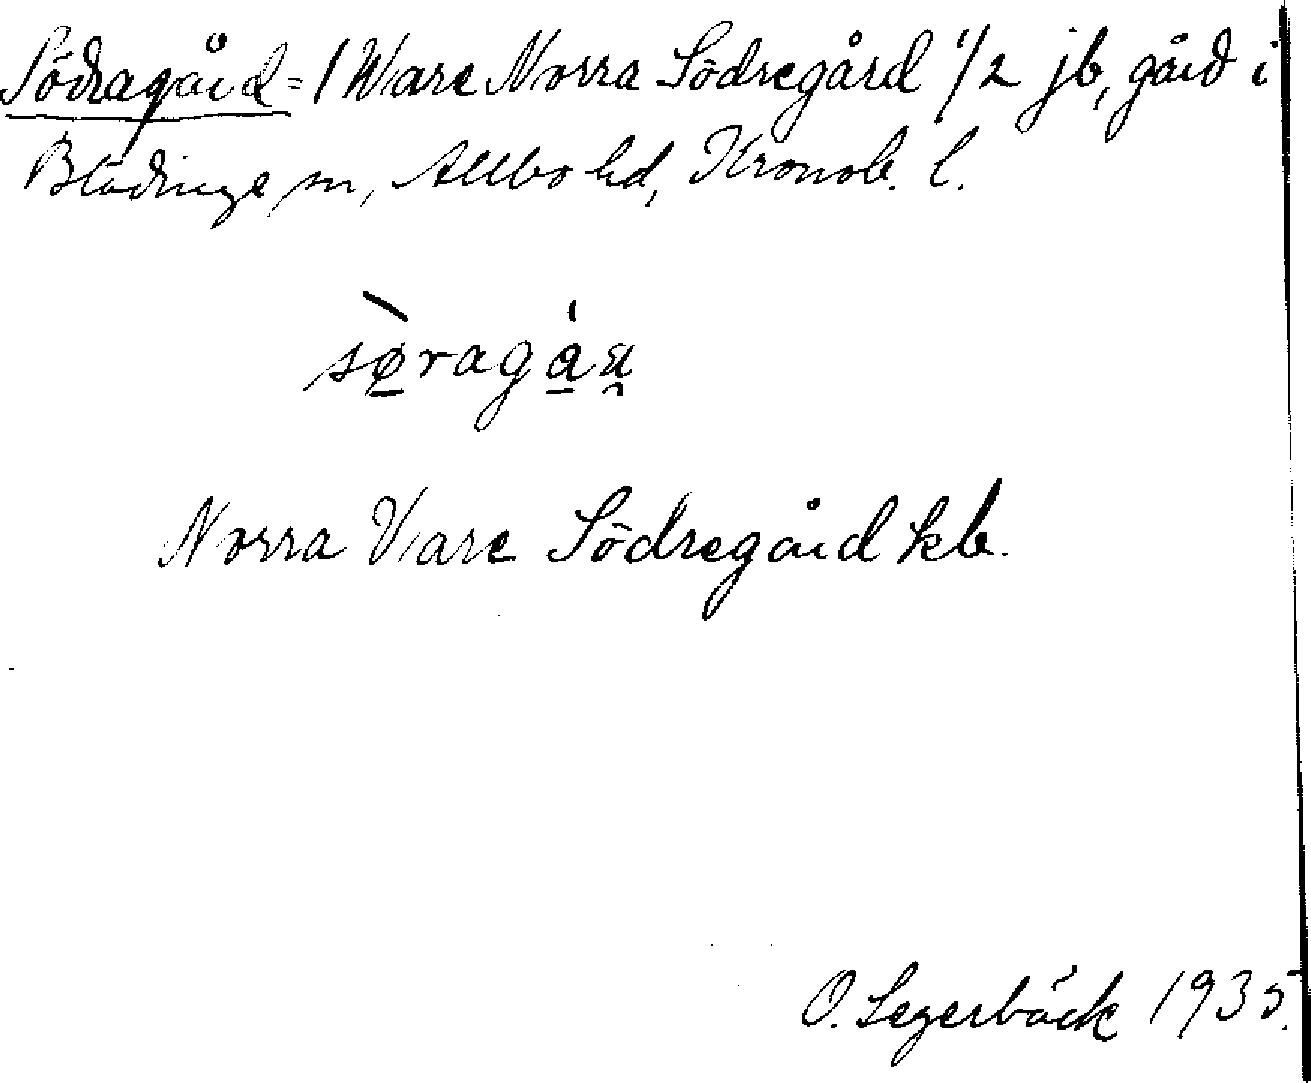 Södragård = / Ware Norra Södregård 1/2 jb, gård i
Blädinge sn, Allbo hd, Kronob. l.
sø̠̀ragá̠ṋ
Norra Vare Södregård kb.
O. Segerbäck 1935.